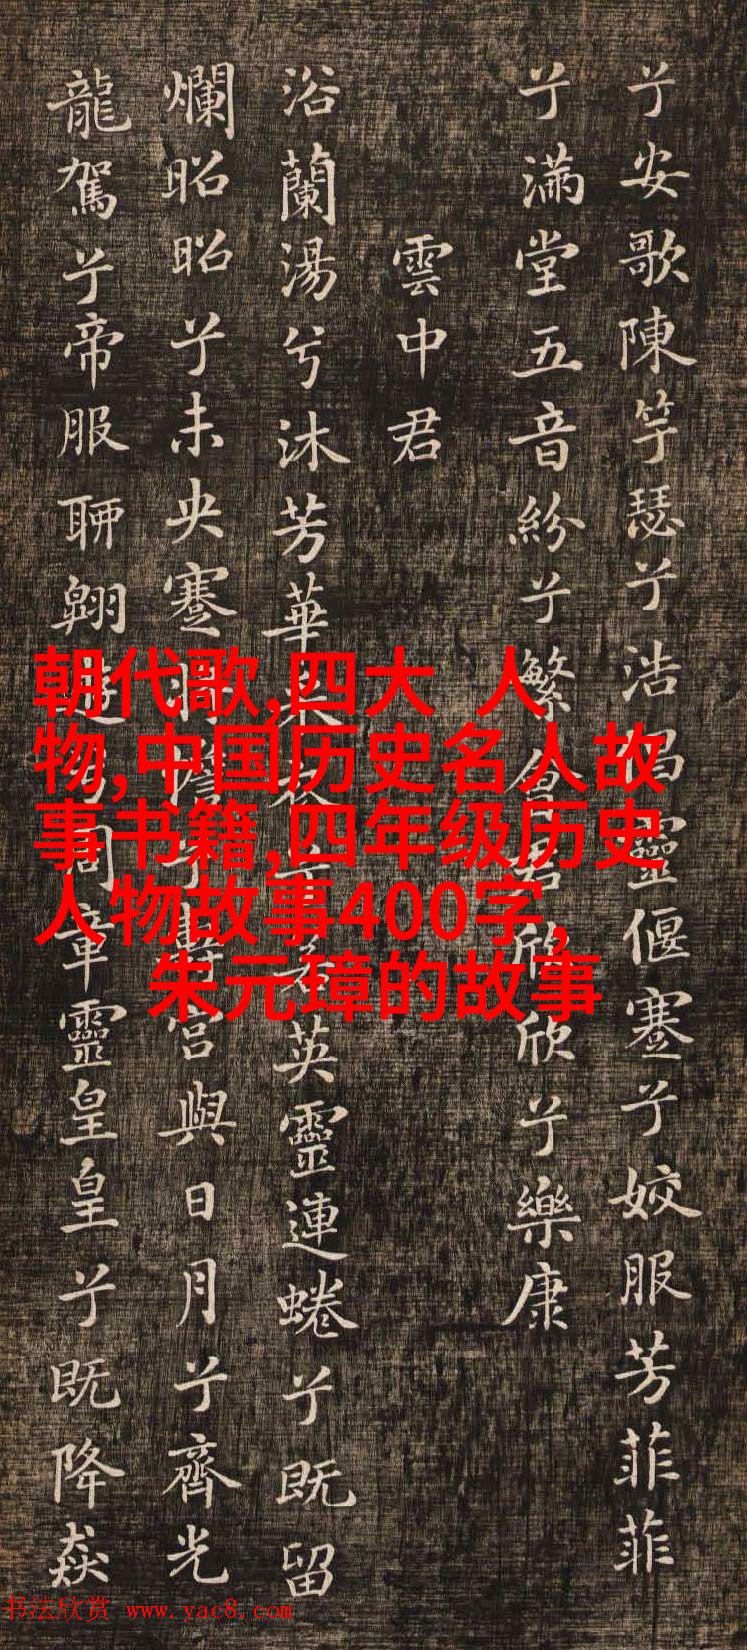 兮安歌陳竽瑟兮浩倡靈偃蹇兮姣服芳菲菲
兮滿堂五音紛兮繁會君欣欣兮樂康
雲中君
浴蘭湯兮沐芳華采衣兮若英靈連蜷兮既留
爛昭昭兮未央蹇將憺兮壽宮與日月兮齊光
龍駕兮帝服聊翱遊兮周章靈皇皇兮既降猋
朝代歌,四大 人
物,中国历史名人故
事书籍,四年级历史
人物故事400字,
朱元璋的故事
书法欣赏 www.yac8.com